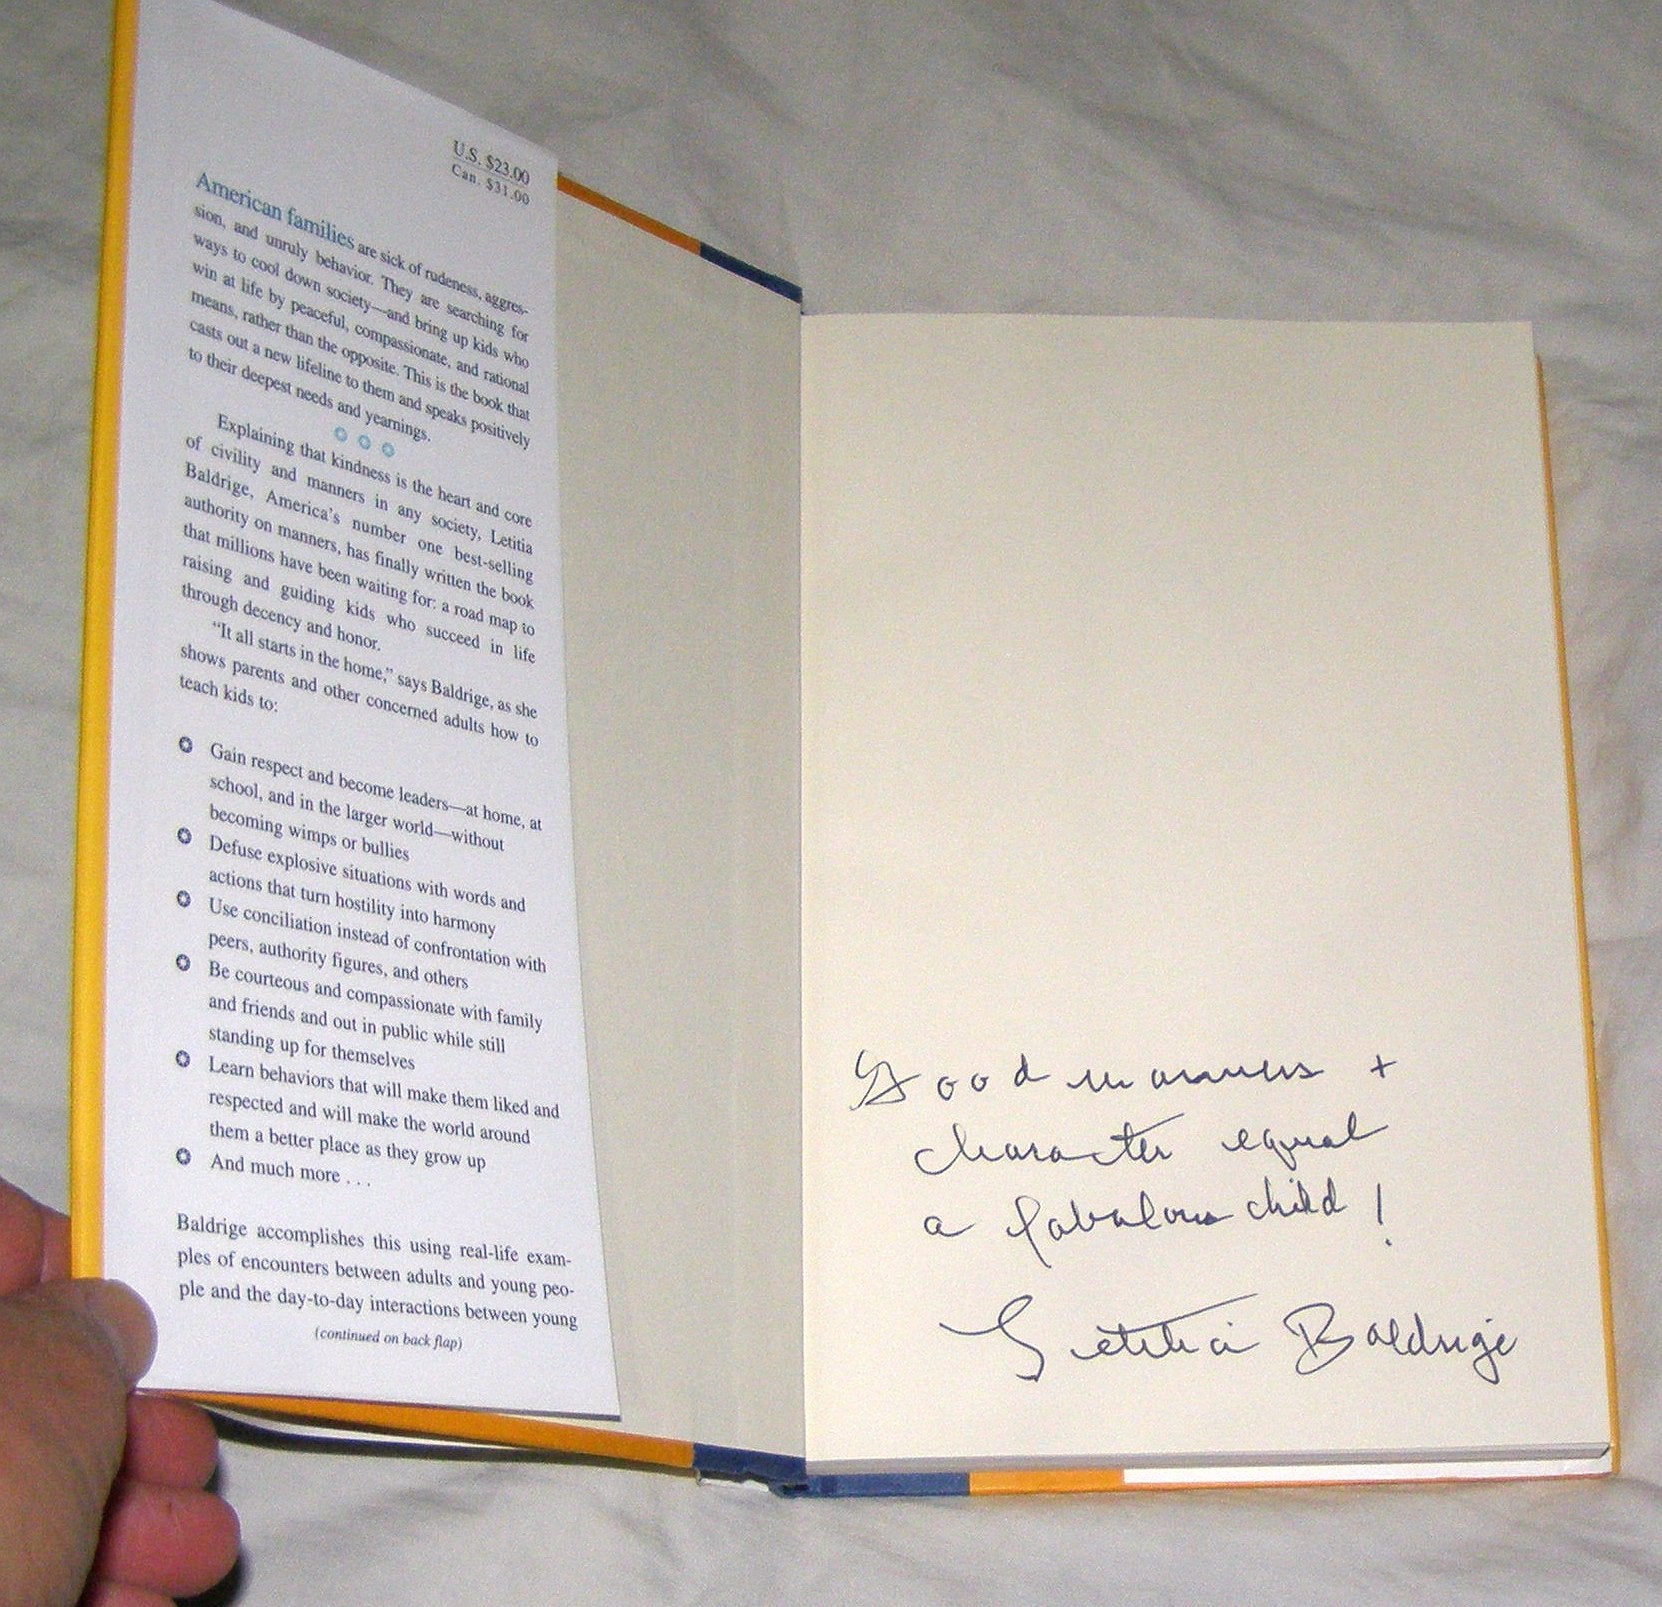 U.S. $23.00
Can. $31.00
American families are sick of rudeness, aggres-
sion, and unruly behavior. They are searching for
ways to cool down society—and bring up kids who
win at life by peaceful, compassionate, and rational
means, rather than the opposite. This is the book that
casts out a new lifeline to them and speaks positively
to their deepest needs and yearnings.
Explaining that kindness is the heart and core
of civility and manners in any society, Letitia
Baldrige, America's number one best-selling
authority on manners, has finally written the book
that millions have been waiting for: a road map to
raising and guiding kids who succeed in life
through decency and honor.
"It all starts in the home," says Baldrige, as she
shows parents and other concerned adults how to
teach kids to:
Gain respect and become leaders—at home, at
school, and in the larger world—without
becoming wimps or bullies
Defuse explosive situations with words and
actions that turn hostility into harmony
Use conciliation instead of confrontation with
peers, authority figures, and others
Be courteous and compassionate with family
and friends and out in public while still
standing up for themselves
Learn behaviors that will make them liked and
respected and will make the world around
them a better place as they grow up
And much more . . .
Baldrige accomplishes this using real-life exam-
ples of encounters between adults and young peo-
ple and the day-to-day interactions between young
(continued on back flap)
Good manners +
character equal
a fabulous child!
Letitia Baldrige